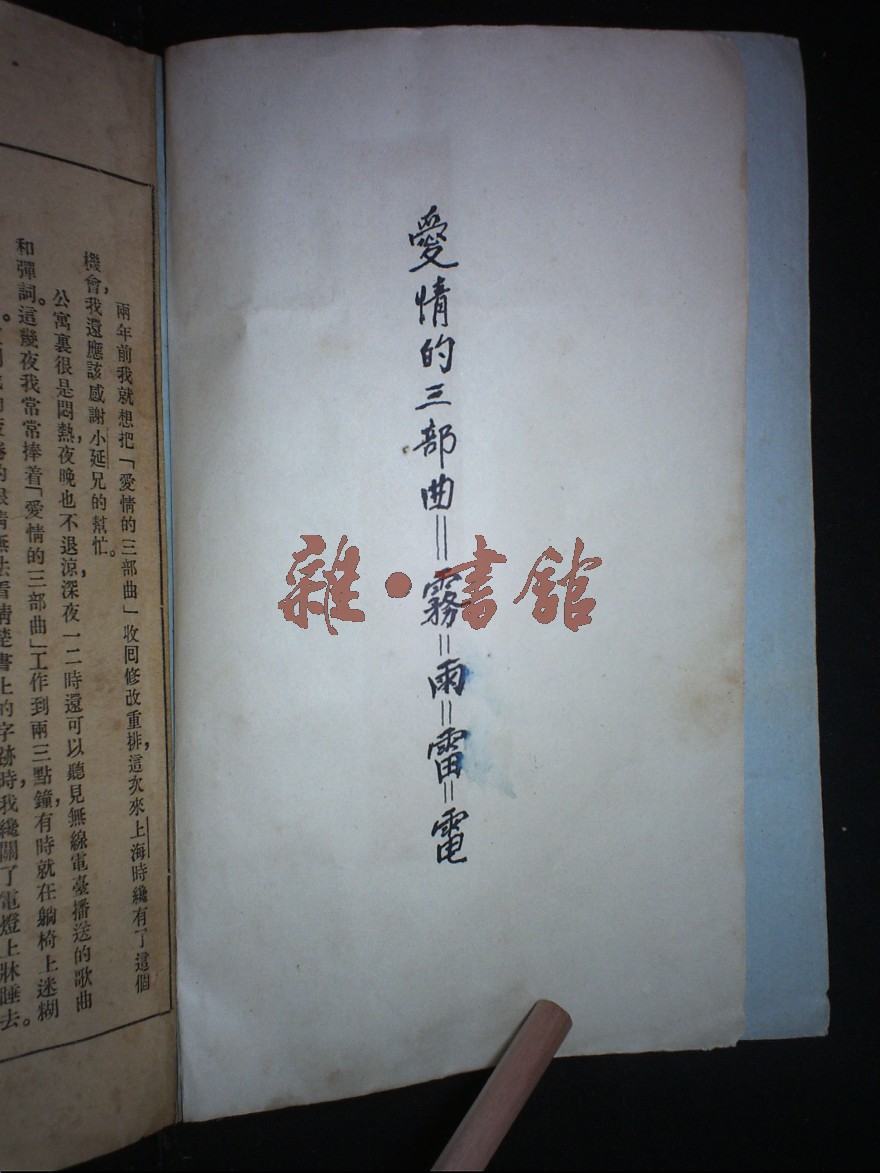 愛情的三部曲＝霧＝雨＝雷＝電
雜·書館
兩年前我就想把「愛情的三部曲」收回修改重排，這次來上海時纔有了這個
機會，我還應該感謝小延兄的幫忙。
公寓裏很是悶熱，夜晚也不退涼，深夜一二時還可以聽見無線電臺播送的歌曲
和彈詞。這幾夜我常常捧着「愛情的三部曲」工作到兩三點鐘，有時就在躺椅上迷糊
的眼睛無法看清楚書上的字跡時，我纔關了電燈上牀睡去。